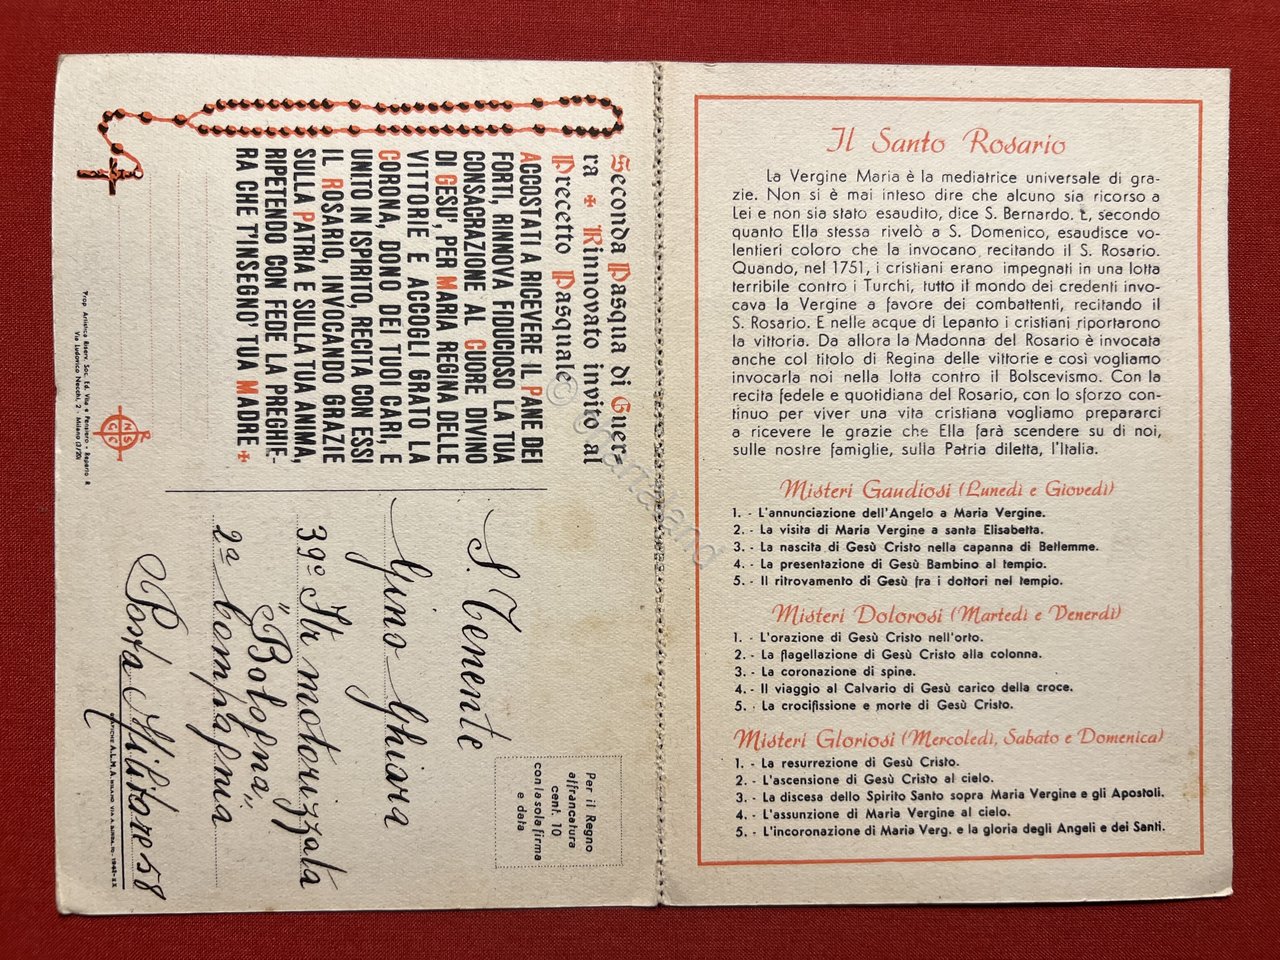 Seconda Pasqua di Guer-
ra ✠ Rinnovato invito al
Precetto Pasquale
ACCOSTATI A RICEVERE IL PANE DEI
FORTI, RINNOVA FIDUCIOSO LA TUA
CONSACRAZIONE AL CUORE DIVINO
DI GESU', PER MARIA REGINA DELLE
VITTORIE E ACCOGLI GRATO LA
CORONA, DONO DEI TUOI CARI, E
UNITO IN ISPIRITO, RECITA CON ESSI
IL ROSARIO, INVOCANDO GRAZIE
SULLA PATRIA E SULLA TUA ANIMA,
RIPETENDO CON FEDE LA PREGHIE-
RA CHE T'INSEGNO' TUA MADRE ✠
Prop. Artistica Riserv. Soc. Ed. Vita e Pensiero - Reparto R
Via Ludovico Necchi, 2 - Milano (3/20)
N S R
C C
Per il Regno
affrancatura
cent. 10
con la sola firma
e data
S. Tenente
Gino Ghiara
39º Ftr motorizzata
"Bologna"
2ª Compagnia
Posta Militare 58
Il Santo Rosario
La Vergine Maria è la mediatrice universale di gra-
zie. Non si è mai inteso dire che alcuno sia ricorso a
Lei e non sia stato esaudito, dice S. Bernardo. E, secondo
quanto Ella stessa rivelò a S. Domenico, esaudisce vo-
lentieri coloro che la invocano recitando il S. Rosario.
Quando, nel 1751, i cristiani erano impegnati in una lotta
terribile contro i Turchi, tutto il mondo dei credenti invo-
cava la Vergine a favore dei combattenti, recitando il
S. Rosario. E nelle acque di Lepanto i cristiani riportarono
la vittoria. Da allora la Madonna del Rosario è invocata
anche col titolo di Regina delle vittorie e così vogliamo
invocarla noi nella lotta contro il Bolscevismo. Con la
recita fedele e quotidiana del Rosario, con lo sforzo con-
tinuo per viver una vita cristiana vogliamo prepararci
a ricevere le grazie che Ella farà scendere su di noi,
sulle nostre famiglie, sulla Patria diletta, l'Italia.
Misteri Gaudiosi (Lunedì e Giovedì)
1. - L'annunciazione dell'Angelo a Maria Vergine.
2. - La visita di Maria Vergine a santa Elisabetta.
3. - La nascita di Gesù Cristo nella capanna di Betlemme.
4. - La presentazione di Gesù Bambino al tempio.
5. - Il ritrovamento di Gesù fra i dottori nel tempio.
Misteri Dolorosi (Martedì e Venerdì)
1. - L'orazione di Gesù Cristo nell'orto.
2. - La flagellazione di Gesù Cristo alla colonna.
3. - La coronazione di spine.
4. - Il viaggio al Calvario di Gesù carico della croce.
5. - La crocifissione e morte di Gesù Cristo.
Misteri Gloriosi (Mercoledì, Sabato e Domenica)
1. - La resurrezione di Gesù Cristo.
2. - L'ascensione di Gesù Cristo al cielo.
3. - La discesa dello Spirito Santo sopra Maria Vergine e gli Apostoli.
4. - L'assunzione di Maria Vergine al cielo.
5. - L'incoronazione di Maria Verg. e la gloria degli Angeli e dei Santi.